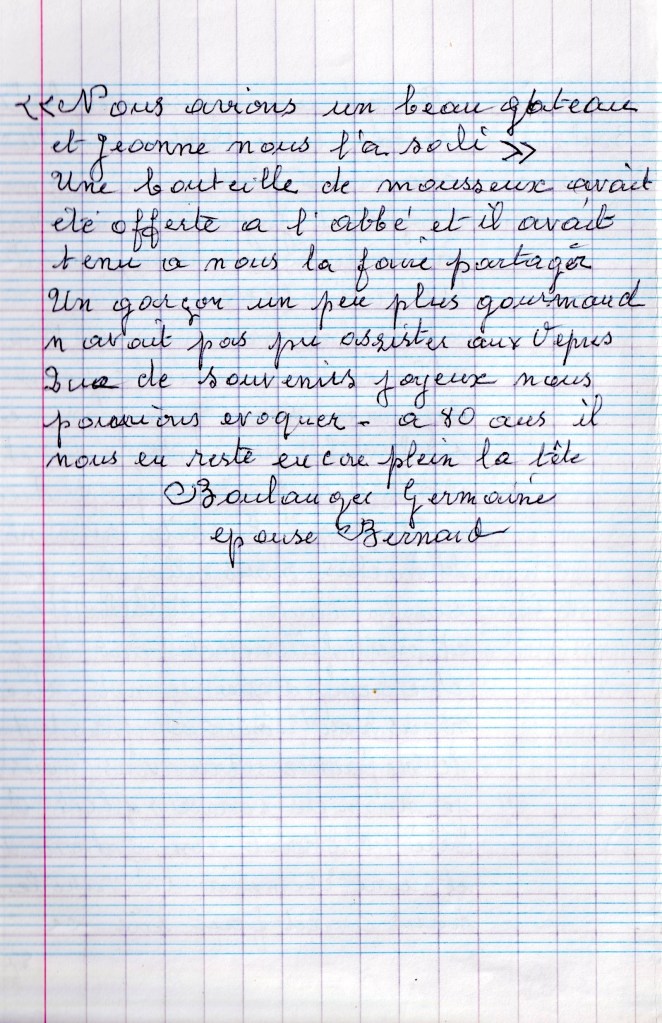 <<Nous avions un beau gateau
et Jeanne nous l'a sali >>
Une bouteille de mousseux avait
été offerte a l'abbé et il avait
tenu a nous la faire partager
Un garçon un peu plus gourmand
n avait pas pu assister aux Vepres
Que de souvenirs joyeux nous
pourrions evoquer - a 80 ans il
nous en reste encore plein la tête
Boulanger Germaine
epouse Bernard